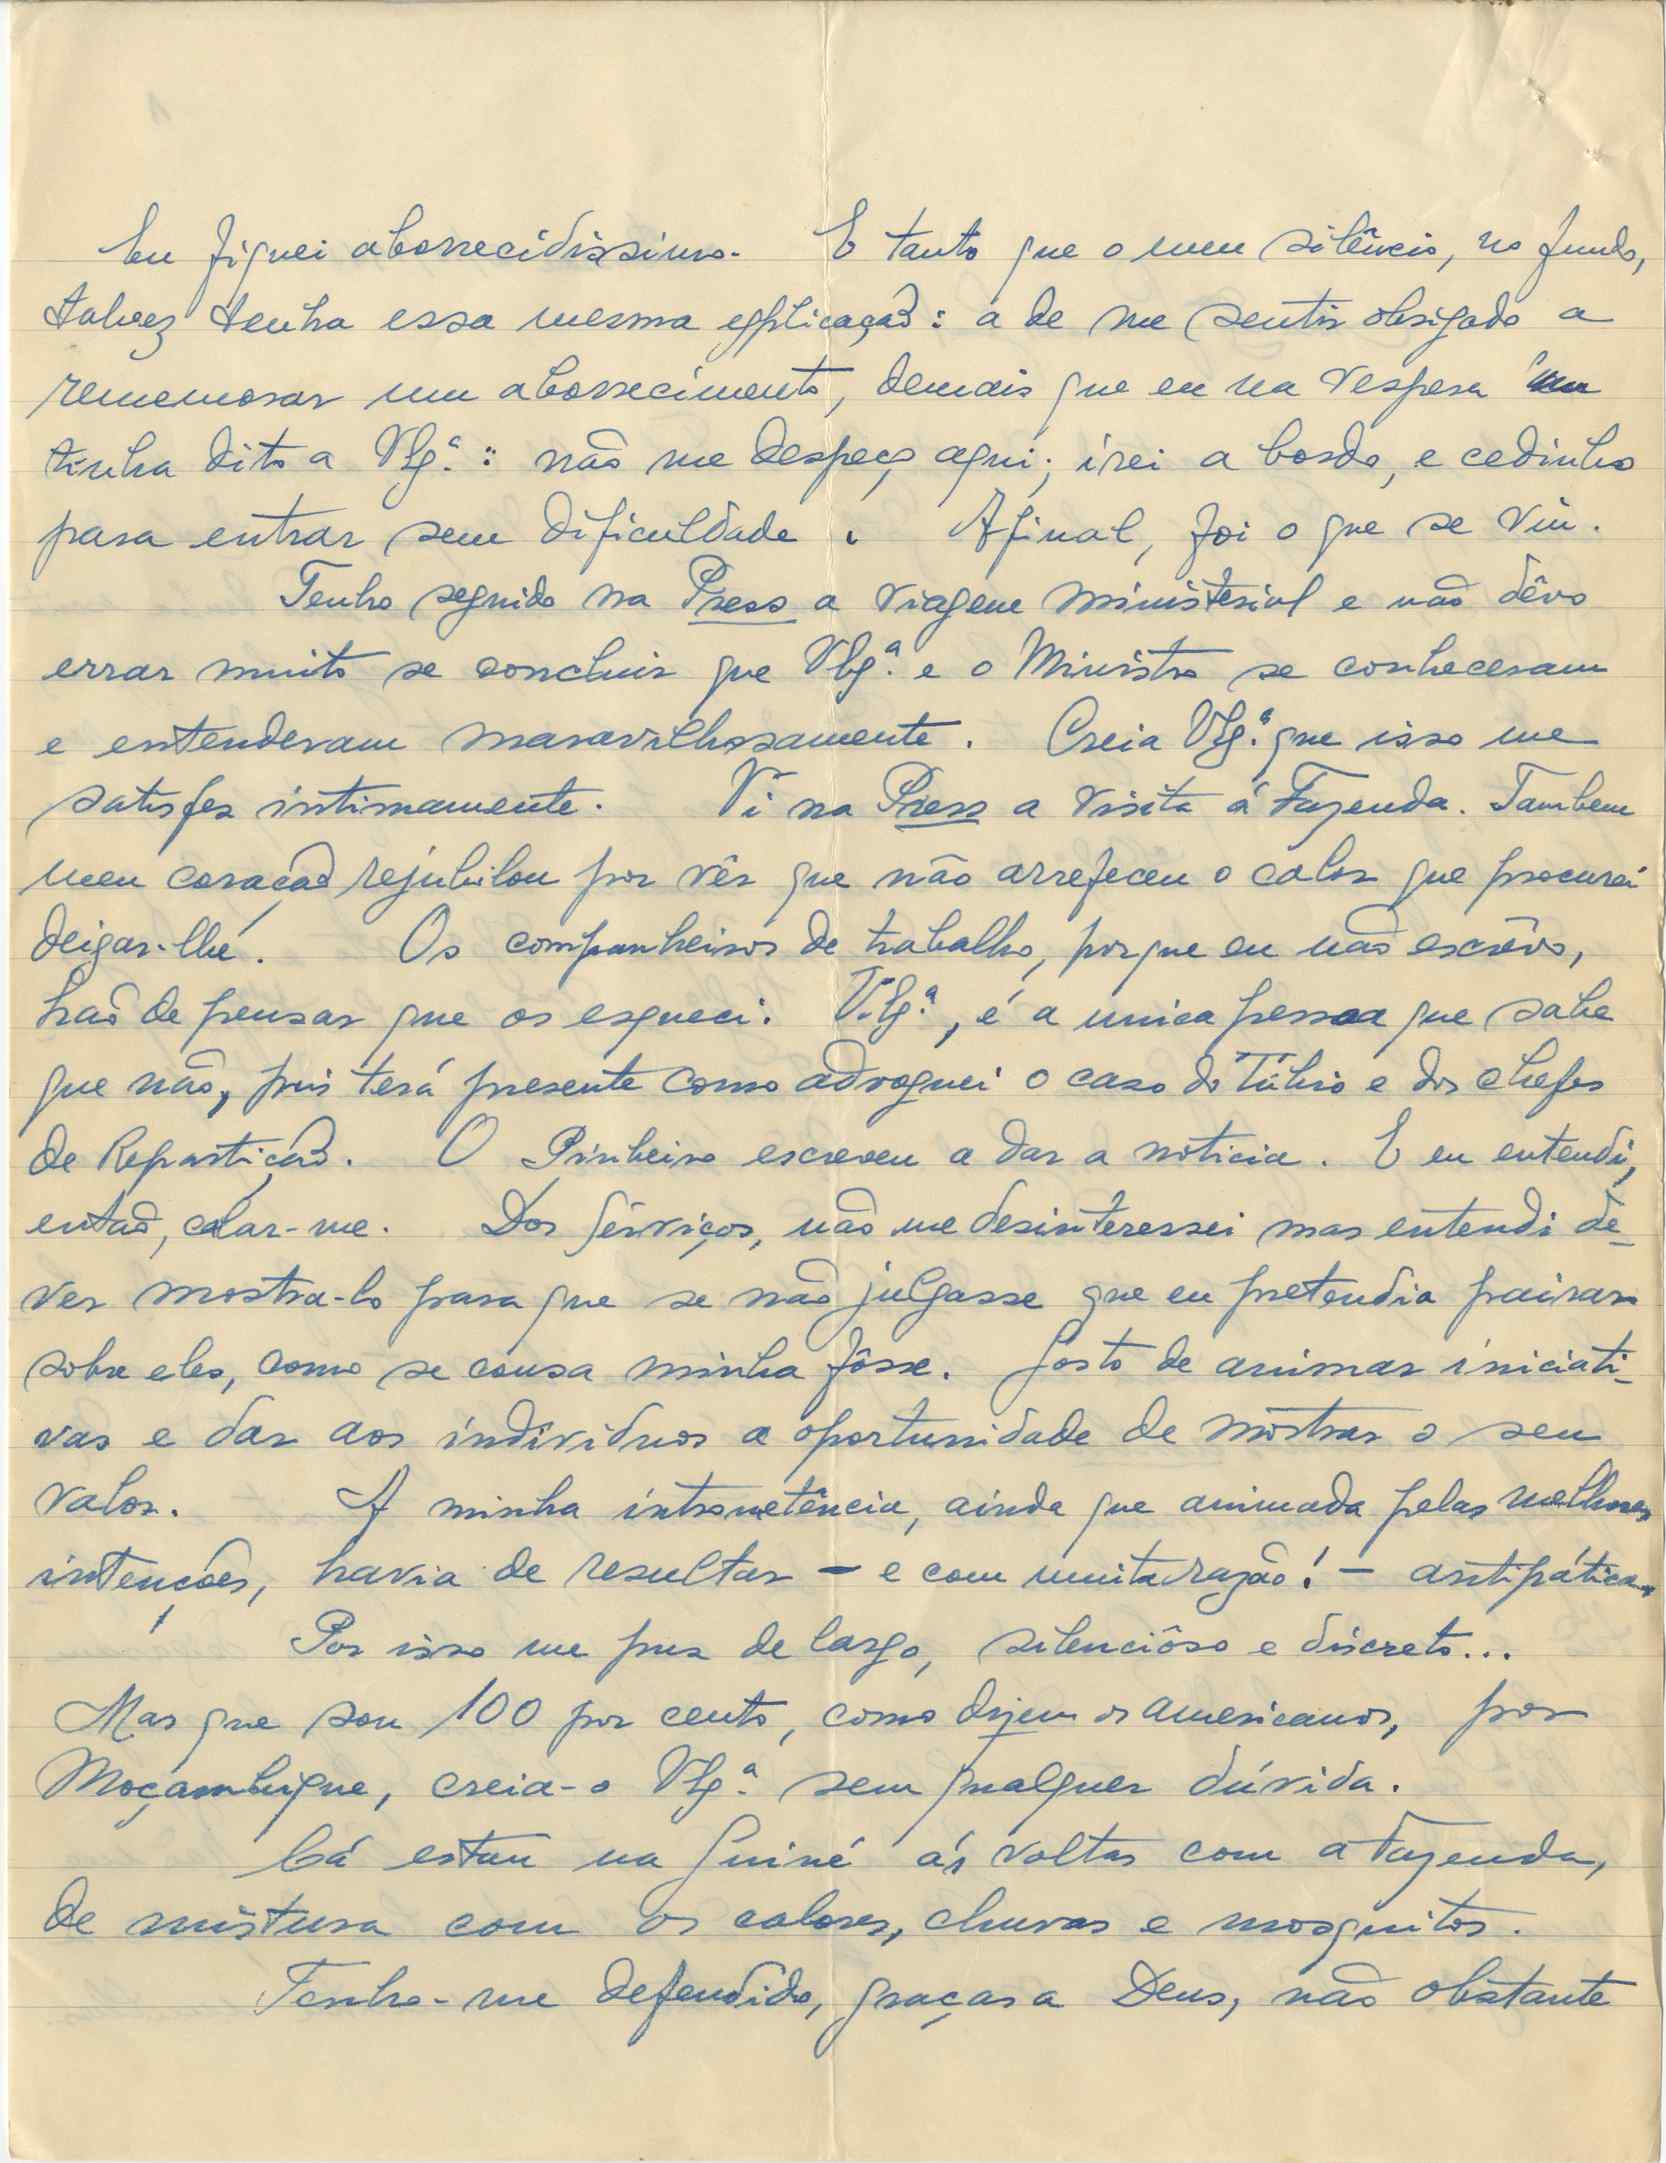 Eu fiquei aborrecidissimo. E tanto que o meu silêncio, no fundo,
talvez tenha essa mesma explicação: a de me sentir obrigado a
rememorar um aborrecimento, demais que eu na vespera
tinha dito a V. Ex.ª: não me despeço aqui; irei a bordo, e cedinho
para entrar sem dificuldade. Afinal, foi o que se viu.
Tenho seguido na Press a viagem ministerial e não dêvo
errar muito se concluir que V. Ex.ª e o Ministro se conheceram
e entenderam maravilhosamente. Creia V. Ex.ª que isso me
satisfez intimamente. Vi na Press a visita á Fazenda. Tambem
meu coração rejubilou por vêr que não arrefeceu o calor que procurei
deixar-lhe. Os companheiros de trabalho, porque eu não escrêvo,
hão de pensar que os esqueci. V. Ex.ª, é a unica pessoa que sabe
que não, pois terá presente como advoguei o caso do Túlio e dos chefes
de Repartição. O Pinheiro escreveu a dar a noticia. E eu entendi,
então, calar-me. Dos Serviços, não me desinteressei mas entendi de-
ver mostra-lo para que se não julgasse que eu pretendia pairar
sobre eles, como se cousa minha fôsse. Gosto de animar iniciati-
vas e dar aos individuos a oportunidade de mostrar o seu
valor. A minha intrometência, ainda que animada pelas melhores
intenções, havia de resultar - e com muita razão! - antipática.
Por isso me pus de largo, silenciôso e discreto...
Mas que sou 100 por cento, como dizem os americanos, por
Moçambique, creia-o V. Ex.ª sem qualquer dúvida.
Cá estou na Guiné ás voltas com a Fazenda,
de mistura com os calores, chuvas e mosquitos.
Tenho-me defendido, graças a Deus, não obstante